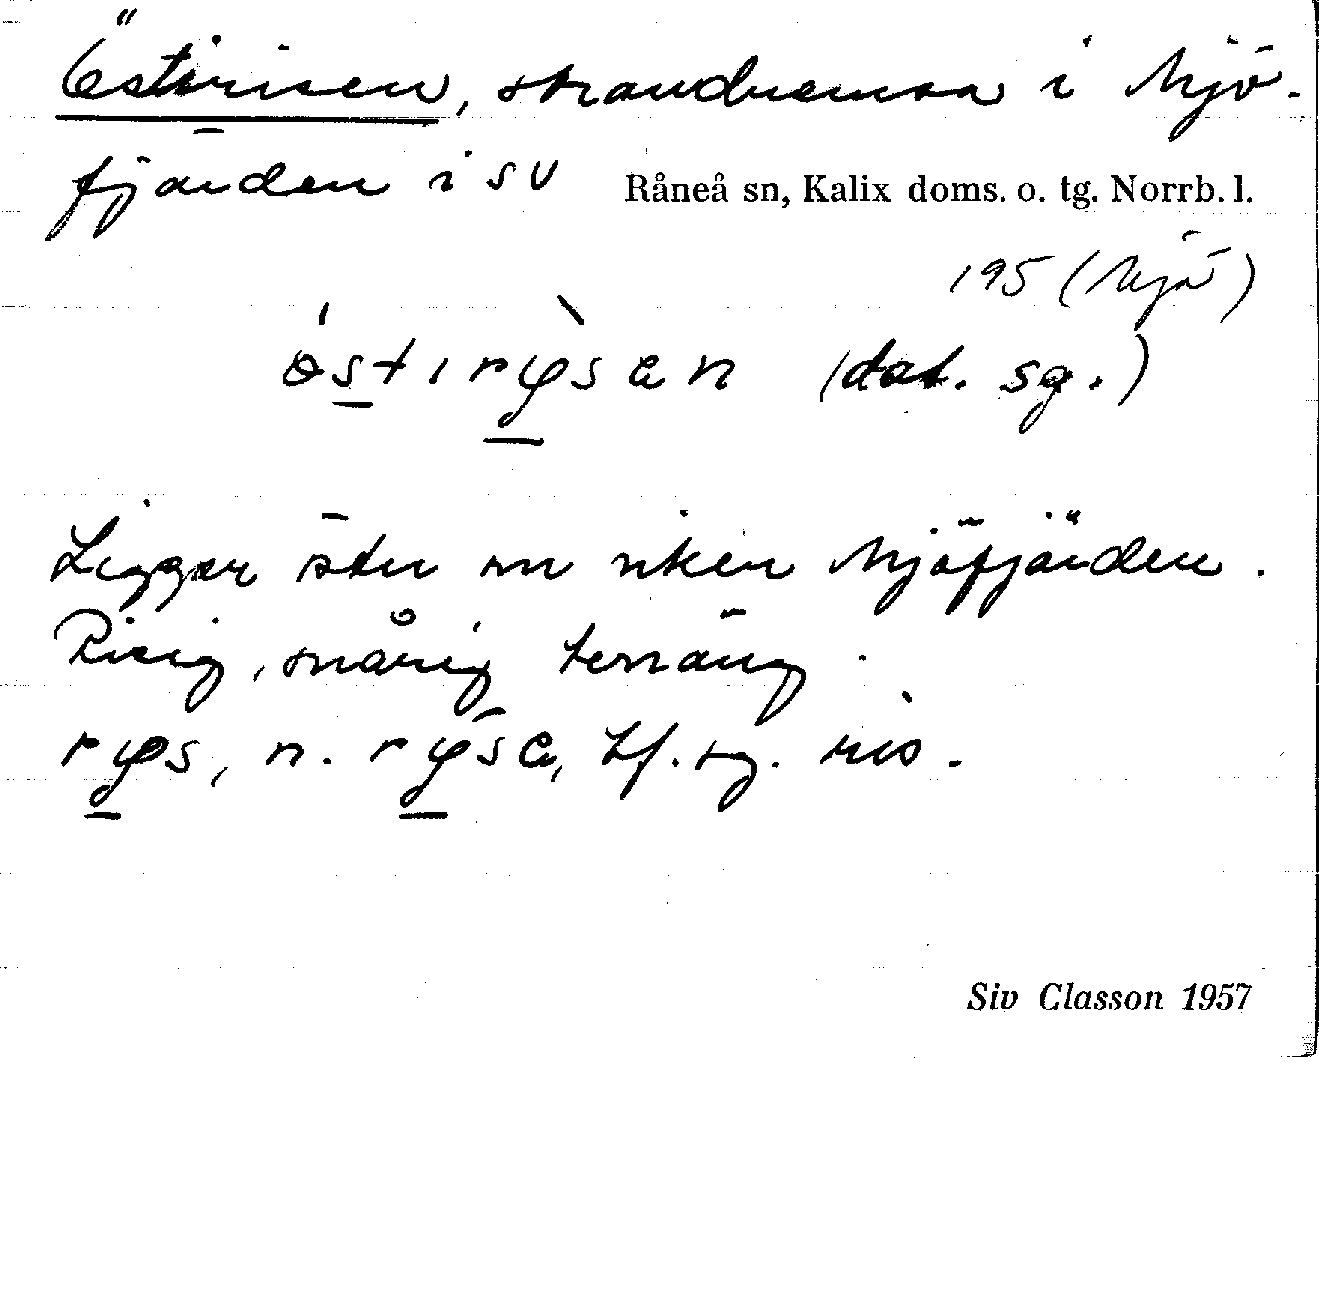 Östirisen, strandremsa i Mjö-
fjärden i SV
Råneå sn, Kalix doms. o. tg. Norrb. l.
195 (Mjö)
östirysen (dat. sg.)
Ligger öster om viken Mjöfjärden.
Risig, snårig terräng.
rys, n. ryse, bf. sg. ris.
Siv Classon 1957